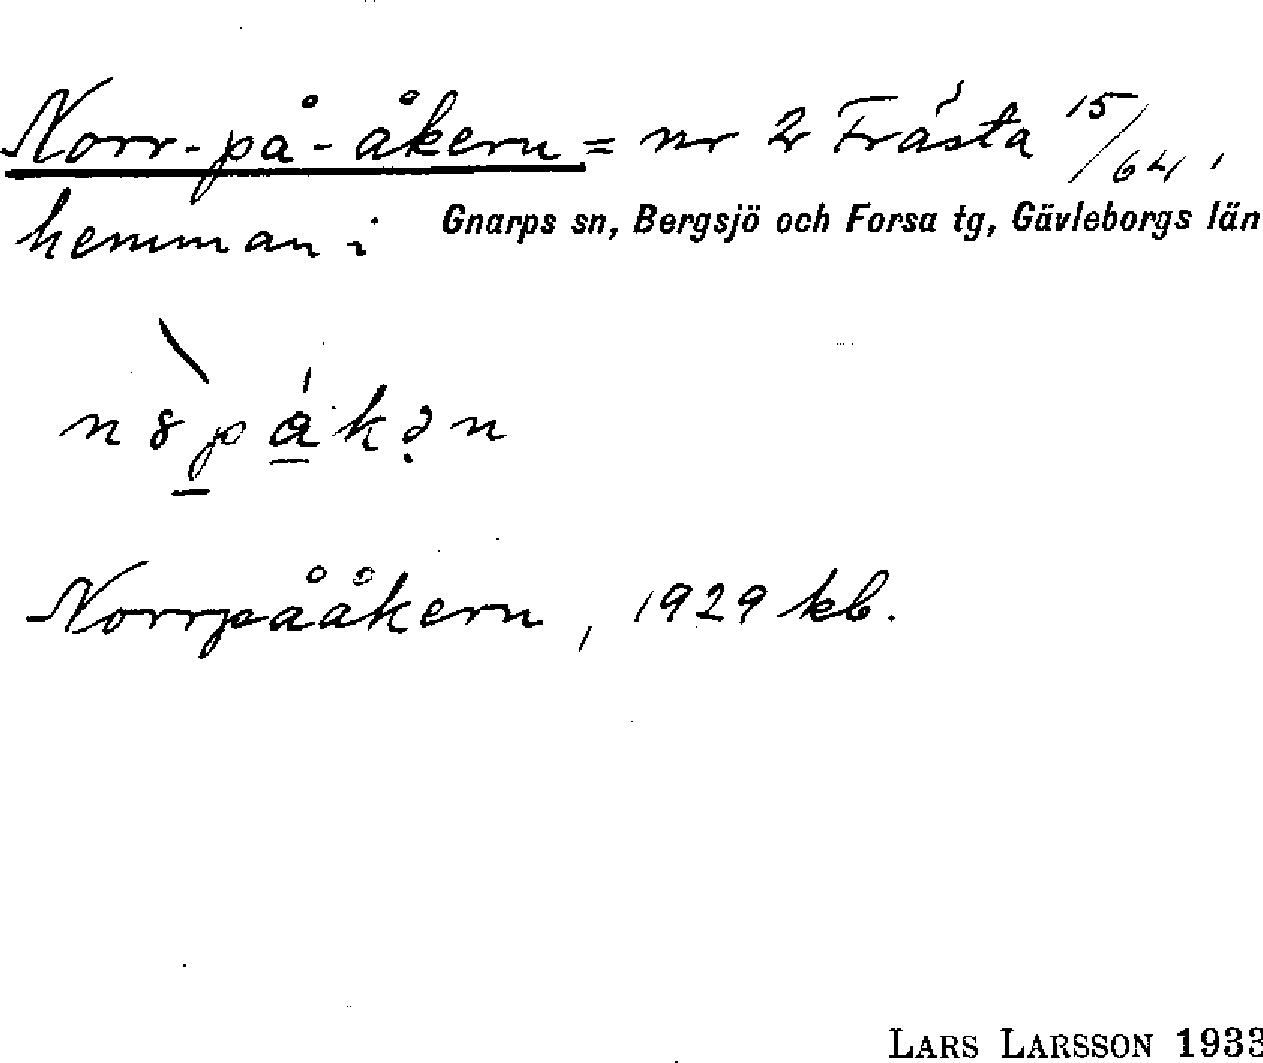 Norr-på-åkern = nr 2 Frästa 15/64,
hemman i Gnarps sn, Bergsjö och Forsa tg, Gävleborgs län
Norrpååkern, 1929 kb.
LARS LARSSON 1933